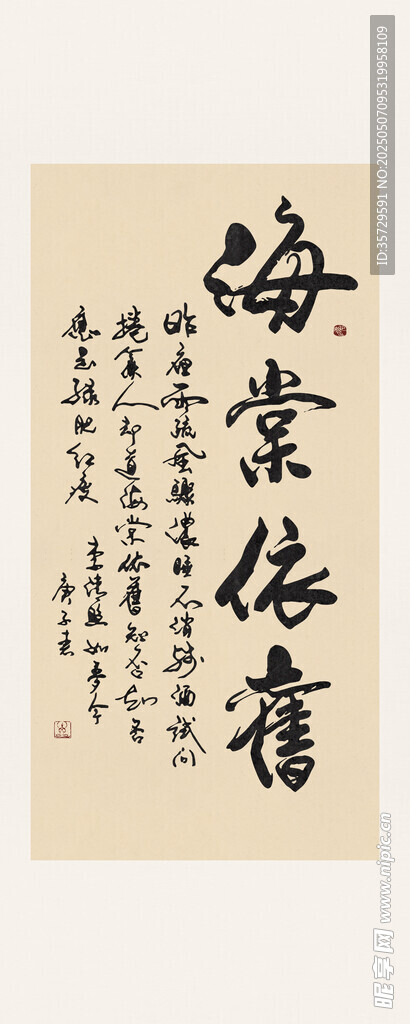 海棠依舊
昨夜雨疏風驟濃睡不消殘酒試問
捲簾人卻道海棠依舊知否知否
應是綠肥紅瘦
李清照如夢令
庚子書
ID:35729591 NO:20250507095319958109
昵享网 www.nipic.cn